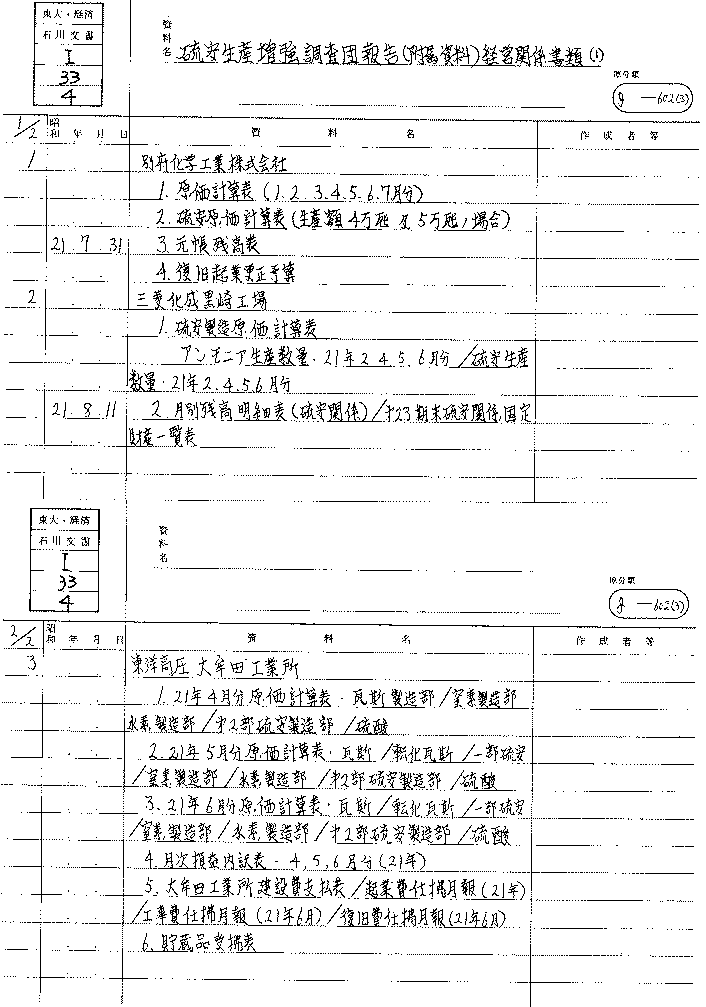 東大・経済
石川文書
I
33
4
資料名 硫安生産増強調査団報告(附属資料)経営関係書類(1)
原分類
g —602(3)
1/2 昭和 年 月 日 資 料 名 作成者等
1 別府化学工業株式会社
1. 原価計算表 (1.2.3.4.5.6.7月分)
2. 硫安原価計算表(生産額4万瓲及5万瓲ノ場合)
21 7 31 3. 元帳残高表
4. 復旧起業更正予算
2 三菱化成黒崎工場
1. 硫安製造原価計算表
アンモニア生産数量・21年2.4.5.6月分/硫安生産
数量・21年2.4.5.6月分
21 8 11 2 月別残高明細表(硫安関係)/才23期末硫安関係固定
財産一覧表
東大・経済
石川文書
I
33
4
資料名
原分類
g —602(3)
2/2 昭和 年 月 日 資 料 名 作成者等
3 東洋高圧大牟田工業所
1. 21年4月分原価計算表・瓦斯製造部/窒素製造部
水素製造部/才2部硫安製造部/硫酸
2. 21年5月分原価計算表・瓦斯/転化瓦斯/一部硫安
/窒素製造部/水素製造部/才2部硫安製造部/硫酸
3. 21年6月分原価計算表・瓦斯/転化瓦斯/一部硫安
/窒素製造部/水素製造部/才2部硫安製造部/硫酸
4. 月次損益内訳表・4,5,6月分(21年)
5. 大牟田工業所建設費支払表/起業費仕拂月報(21年)
/工事費仕拂月報(21年6月)/復旧費仕拂月報(21年6月)
6. 貯蔵品受拂表